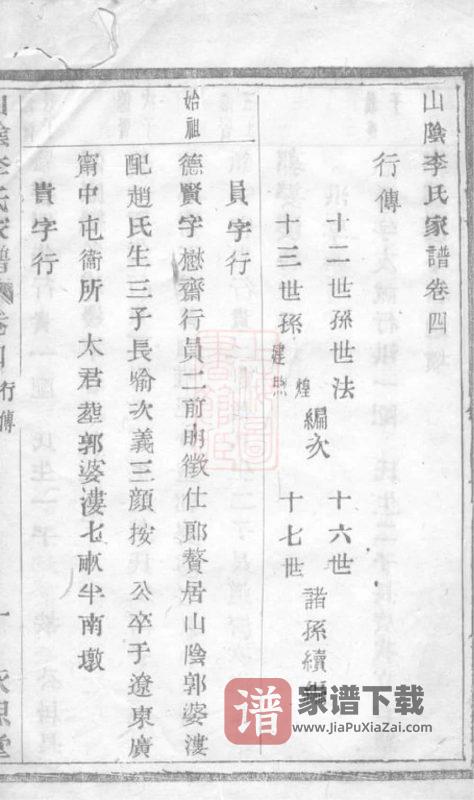 山陰李氏家譜卷四
行傳
十二世孫世法
十三世孫建煌 
煦
編次
十六世
十七世
諸孫續編
員字行
始祖
德賢字懋齋行員二前明徵仕郎贅居山陰郭婆漊
配趙氏生三子長喻次義三顔按 公卒于遼東廣
甯中屯衞所 太君塟郭婆漊七畝半南墩
貴字行
山陰李氏家譜
卷四
行傳
一
永思堂
譜
家谱下载
www.JiaPuXiaZai.com